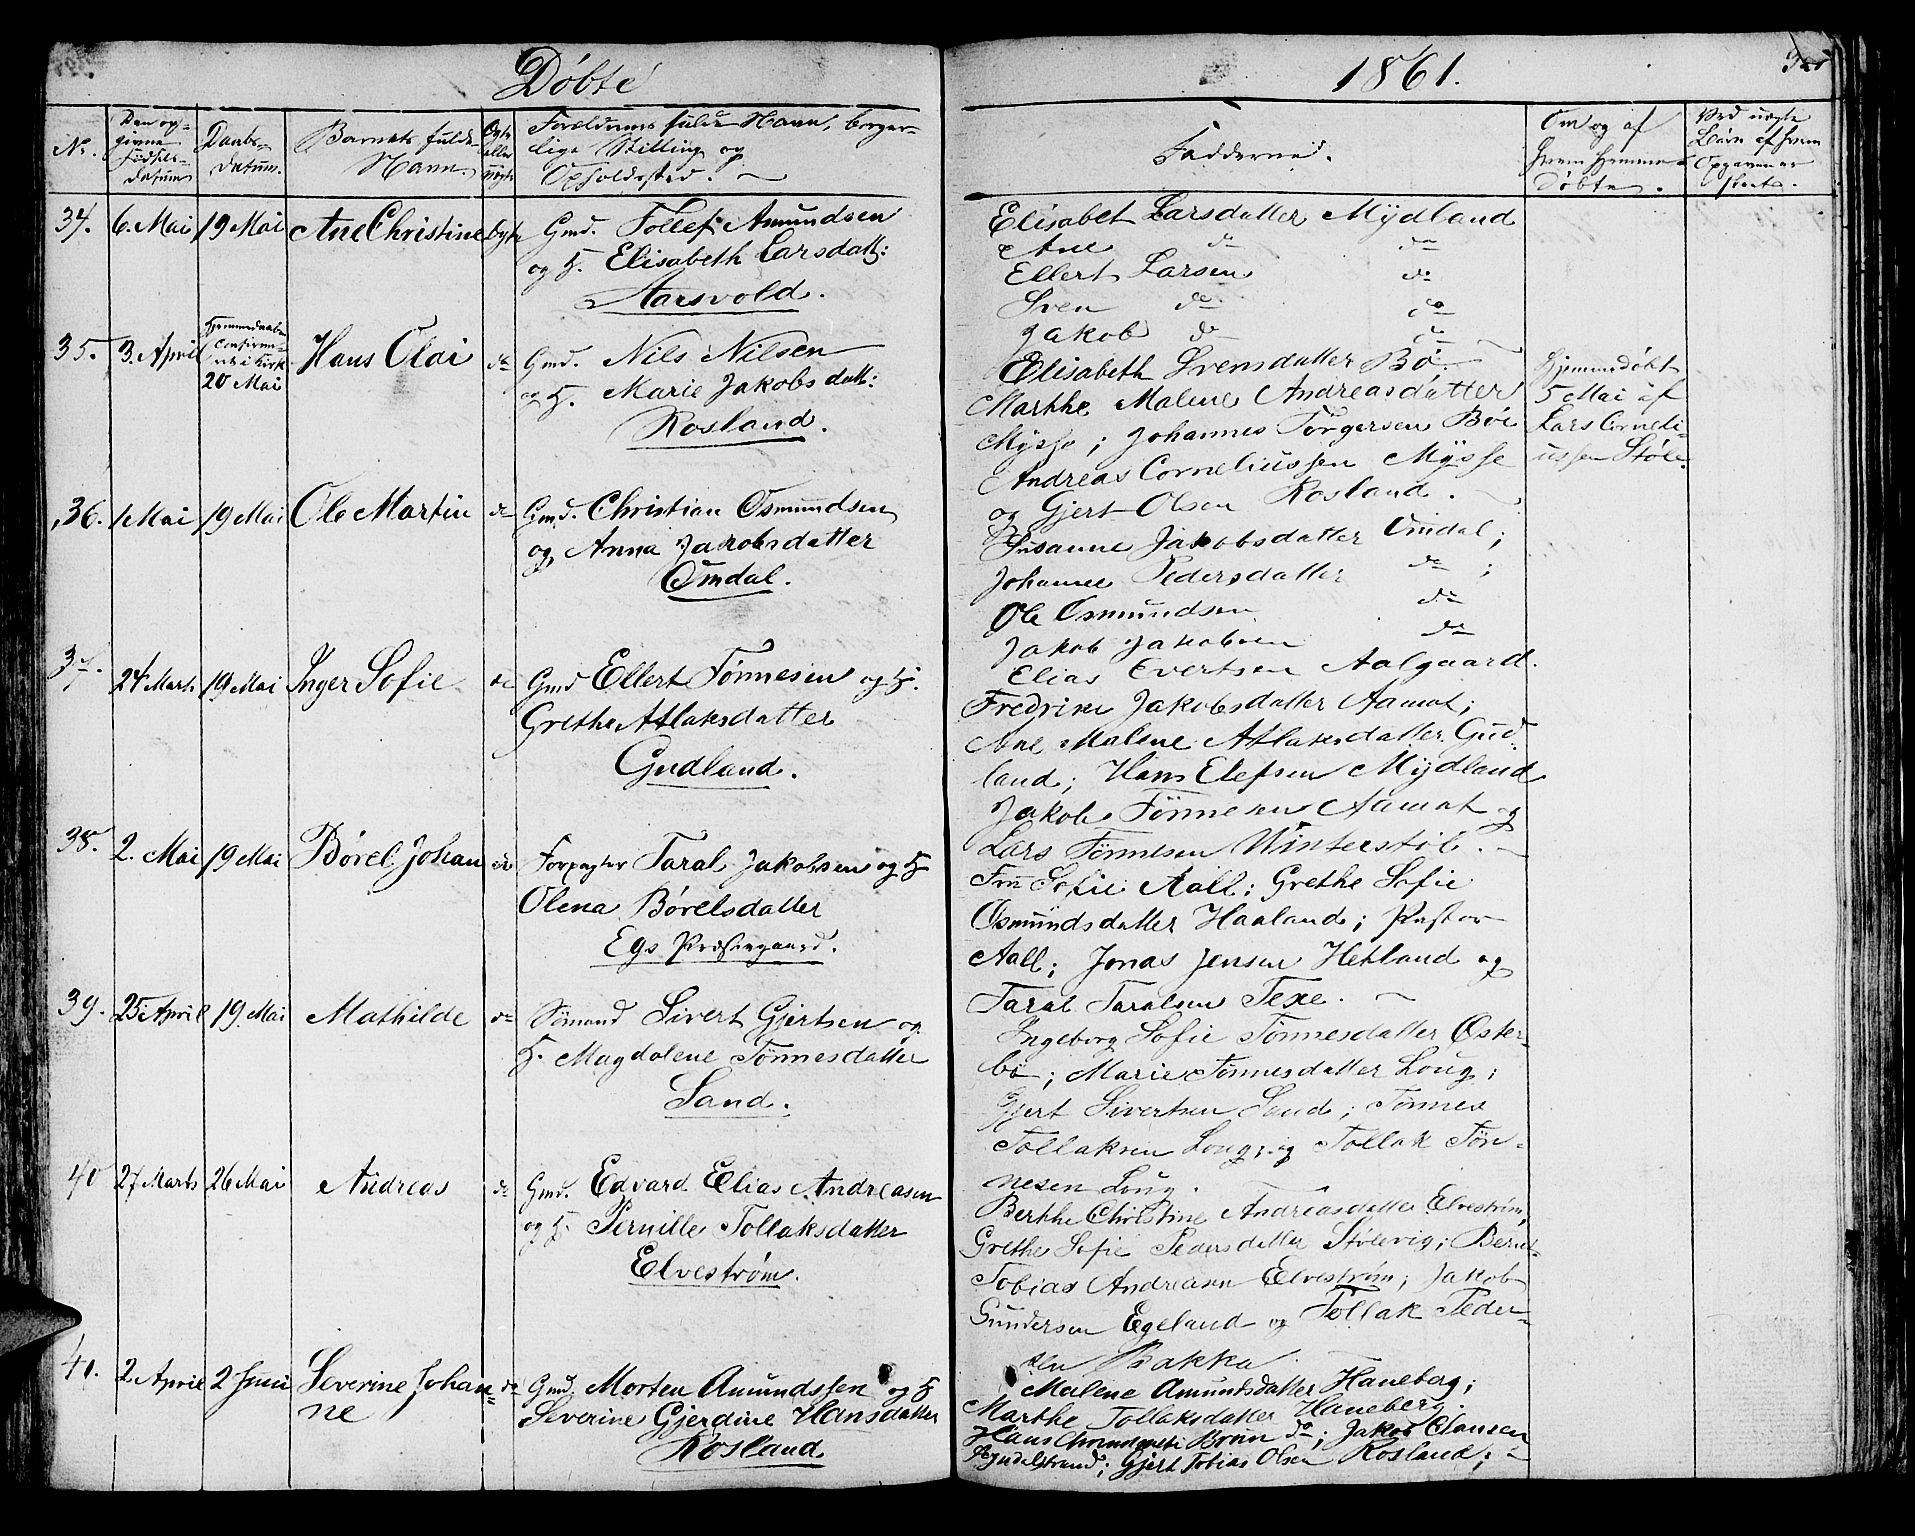 Døbte
1861.
No.
Den op-
givne
Fødsels-
datum
Daabs-
datum.
Barnets fulde
Navn.
Ægte
eller
uægte
Forældrenes fulde Navn, borger-
lige Stilling og
Opholdssted.
Faddernes.
Om og af
hvem hjemme-
døbte.
Ved uægte
Børn af hvem
Opgaven er
skeet.
34. 6. Mai 19 Mai Ane Christine Gmd. Tollef Amundsen
og H. Elisabeth Larsdatt:
Aarsvold.
Elisabet Larsdatter Mydland
Ane do do
Ellert Larsen do
Sven do do
Jakob do do
35. 3. April Hjemmedaaben
i Kirk
20 Mai Hans Olai do Gmd. Nils Nilsen
og H. Marie Jakobs datt:
Rosland.
Elisabeth Svensdatter Bø
Marthe Malene Andreasdatter
Mysse; Johannes Torgersen Böe
Andreas Corneliussen Mysse
og Gjert Olsen Rosland.
Hjemmedøbt
5 Mai af
Lars Corneli-
ussen Støle.
36. 1 Mai 19 Mai Ole Martin do Gmd. Christian Osmundsen
og Anna Jakobsdatter
Omdal.
Susanne Jakobsdatter Omdal;
Johanne Pedersdatter do;
Ole Osmundsen do
Jakob Jakobsen do
Elias Evertsen Aalgaard.
37. 24 Marts 19 Mai Inger Sofie do Gmd Ellert Tønnesen og H.
Grethe Atlaksdatter
Gudland.
Fredrike Jakobsdatter Aamot;
Ane Malene Atlaksdatter Gud-
land; Hans Elefsen Mydland
Jakob Tönnesen Aamot og
Lars Tønnesen Winterstøl.
38. 2. Mai 19 Mai Børel Johan do Forpagter Taral Jakobsen og H
Olena Børelsdatter
Egs Præstegaard.
Sofie Aall; Grethe Sofie
Osmundsdatter Haaland; Pastor
Aall; Jonas Jensen Hetland og
Taral Taralsen Texe.
39. 25 April 19. Mai Mathilde do Sømand Sivert Gjertsen og
H. Magdalene Tönnesdatter
Sand.
Ingeborg Sofie Tønnesdatter Øster-
bø; Marie Tønnesdatter Loug;
Gjert Sivertsen Sand; Tønnes
Tollaksen Loug; og Tollak Tøn-
nesen Loug.
40 27 Marts 26 Mai Andreas do Gmd. Edvard Elias Andreasen
og H. Pernille Tollaksdatter
Elvestrøm.
Berthe Christine Andreasdatter Elvestrøm,
Grethe Sofie Pedersdatter Stølevig; Bernt
Tobias Andreasen Elvestrøm; Jakob
Gundersen Egeland og Tollak Peder-
sen Bakka
41. 2 April 2 Juni Severine Johan
ne do Gmd. Morten Amundssen og H
Severine Gjerdine Hansdatter
Rosland.
Malene Amundsdatter Haneberg;
Marthe Tollaksdatter Haneberg.
Hans Bruun do; Jakob Clausen
Gjert Tobias Olsen Rosland;